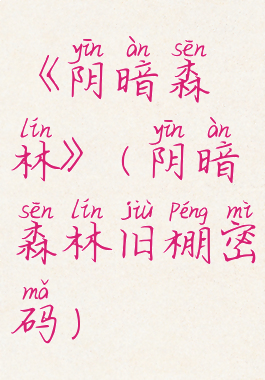 yīn àn sēn
《阴暗森
lín yīn àn
林》（阴暗
sēn lín jiù Péng mì
森林旧棚密
mǎ
码）